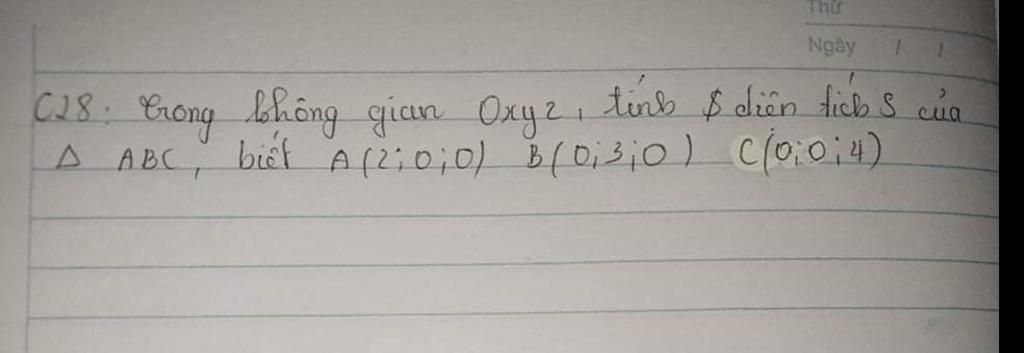 Thứ
Ngày / /
C28: Trong không gian Oxyz, tính $ diện tích S của
Δ ABC, biết A(2;0;0) B(0;3;0) C(0;0;4)